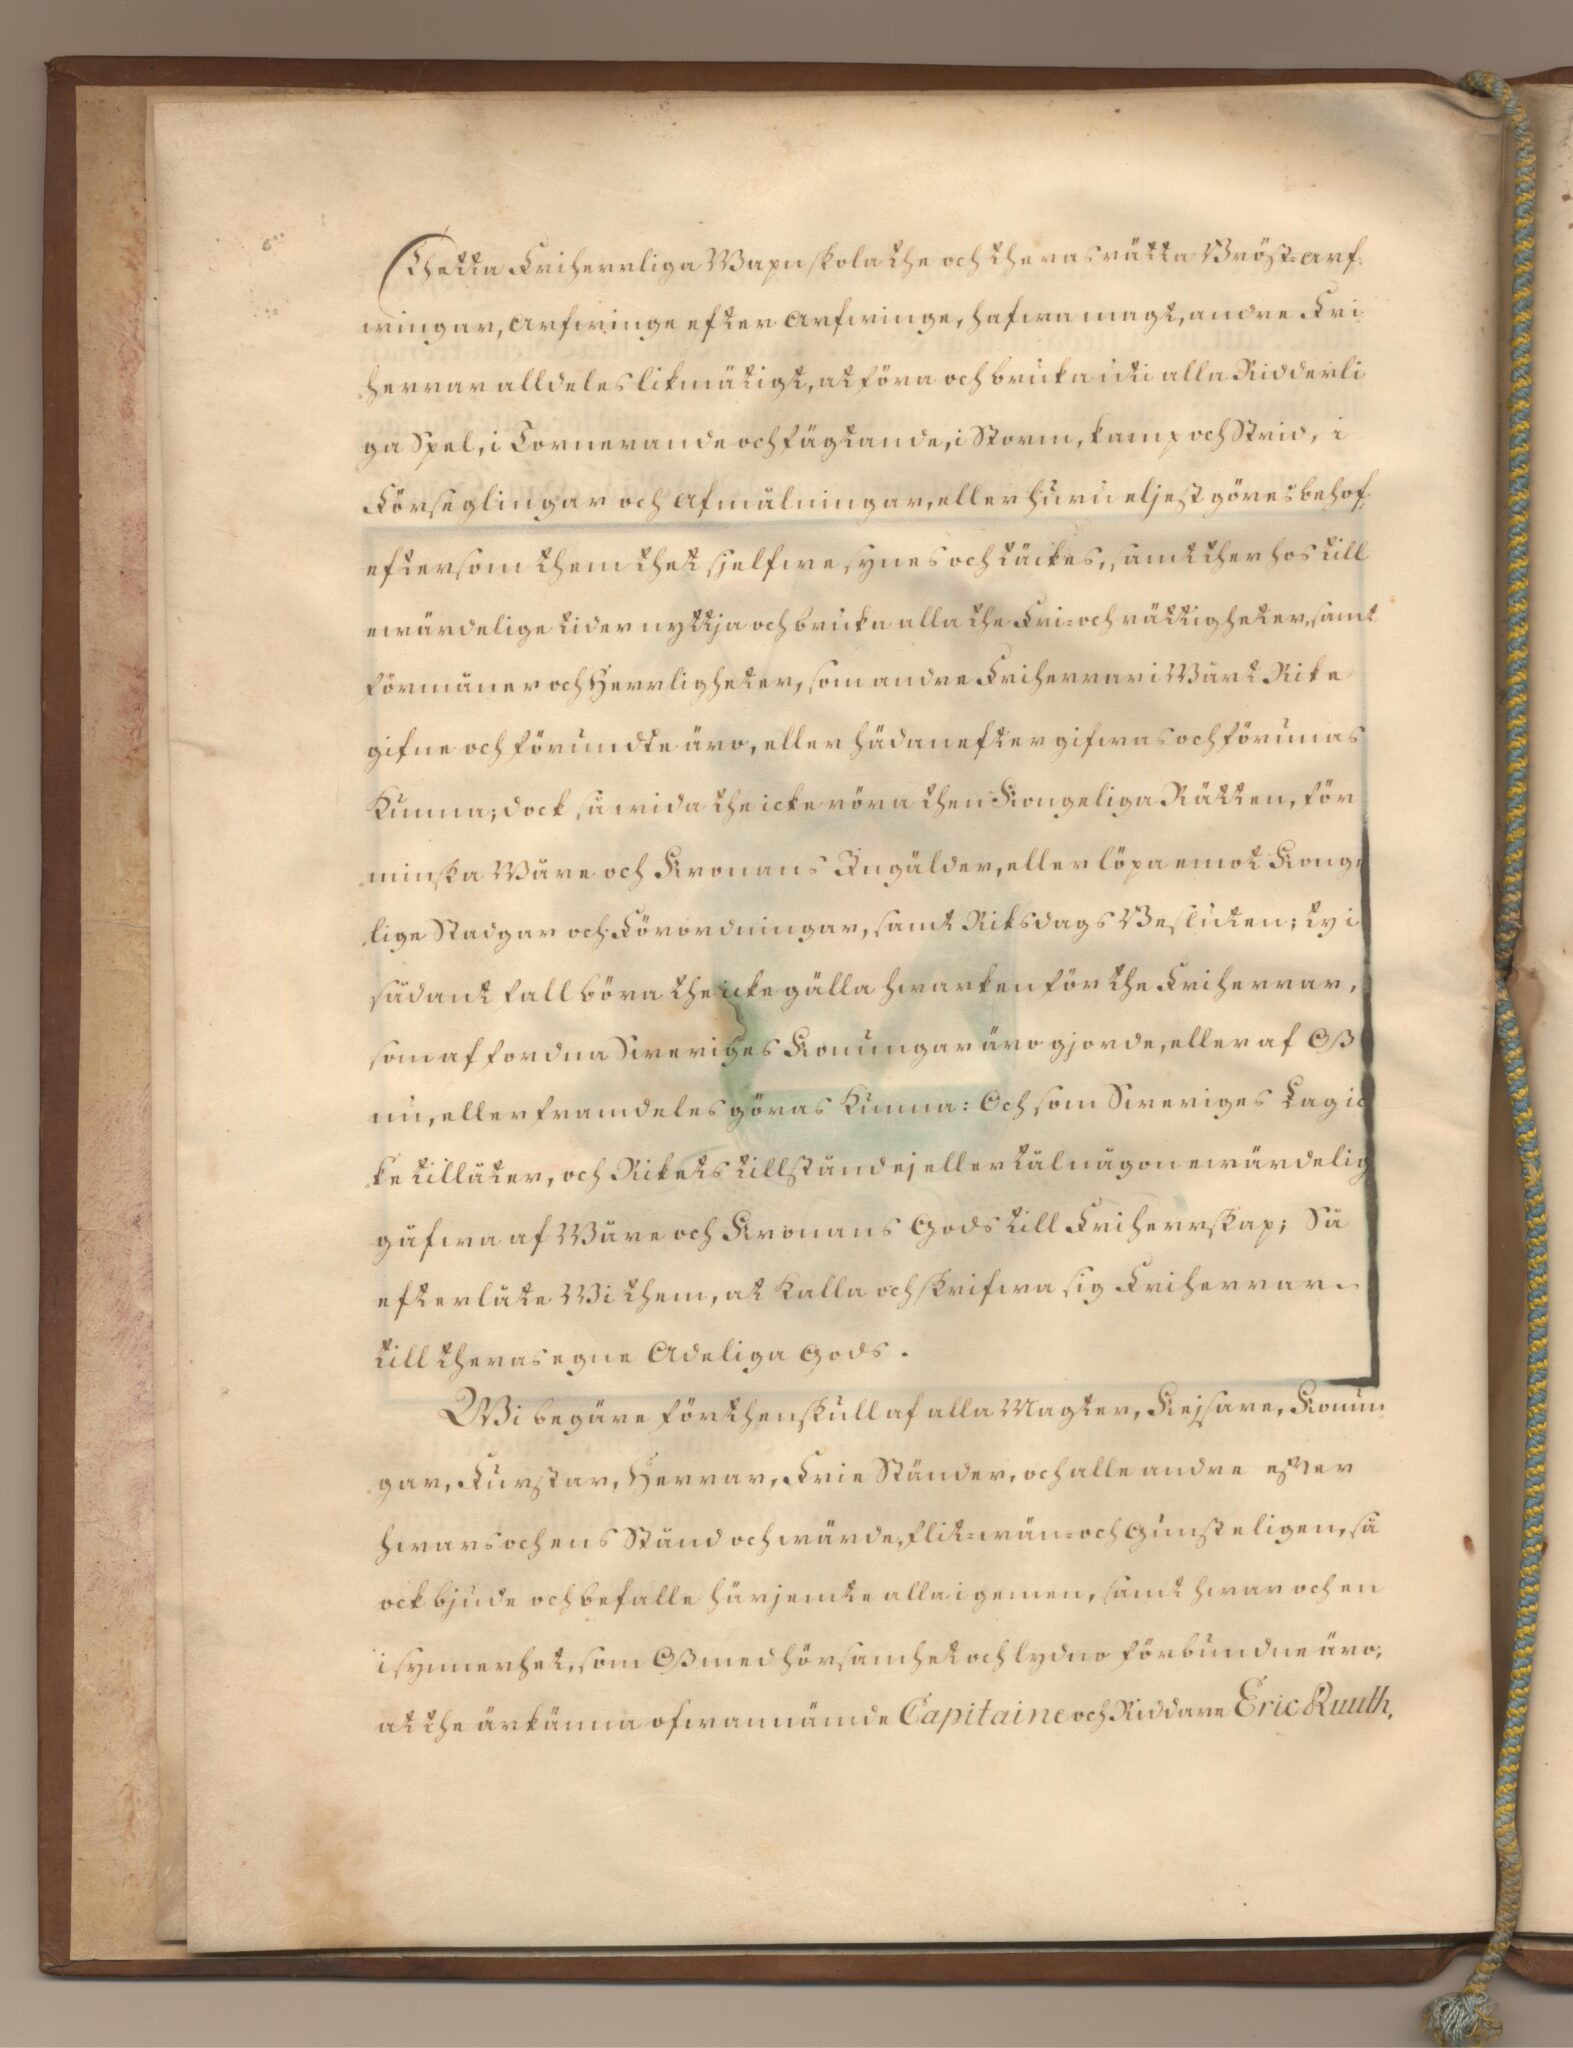 Thetta Friherrliga Wapn skola the och theras rätta Bröst-arf-
wingar, Arfwinge efter Arfwinge, hafwa magt, andre Fri
herrar alldeles likmätigt, at föra och bruka uti alla Ridderli
ga Spel, i Tornerande och fägtande, i Storm, kamp och Strid, i
Förseglingar och Afmålningar, eller huru eljest göres behof,
eftersom them thet sjelfwe synes och täckes, samt ther hos till
ewärdelige tider nyttja och bruka alla the Fri- och rättigheter, samt
förmåner och Herrligheter, som andre Friherrar i Wårt Rike
gifne och förundte äro, eller hädanefter gifwas och förunnas
kunna; dock så wida the icke röra then Kongeliga Rätten, för
minska Wåre och Kronans Ingälder, eller löpa emot Konge
lige Stadgar och Förordningar, samt Riksdags Besluten; ty i
sådant fall böra the icke gälla hwarken för the Friherrar,
som af fordna Sweriges Konungar äro gjorde, eller af Oß
nu, eller framdeles göras kunna: Och som Sweriges Lag ic
ke tillåter, och Rikets tillstånd ej eller tål någon ewärdelig
gåfwa af Wåre och Kronans Gods till Friherrskap; Så
efterlåte Wi them, at kalla och skrifwa sig Friherrar
till theras egne Adeliga Gods.
Wi begäre förthenskull af alla Magter, Kejsare, Konun
gar, Furstar, Herrar, Frie Ständer, och alle andre efter
hwars och ens Stånd och wärde, flit- wän- och Gunsteligen, så
ock bjude och befalle härjemte alla i gemen, samt hwar och en
i synnerhet, som Oß med hörsamhet och lydno förbundne äro,
at the ärkänna ofwannämde Capitaine och Riddare Eric Ruuth,